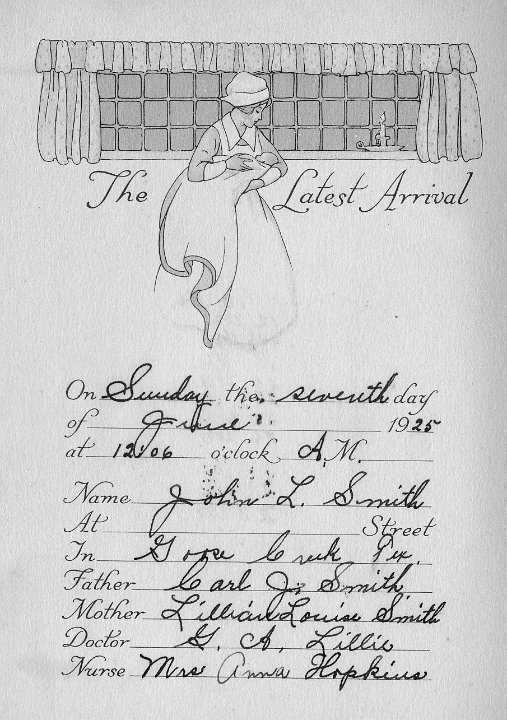 The Latest Arrival
On Sunday the seventh day
of June 1925
at 12:06 o'clock A.M.
Name John L. Smith
At Street
In Goose Creek Tex.
Father Carl J. Smith
Mother Lillian Louise Smith
Doctor G. A. Lillie
Nurse Mrs Anna Hopkins